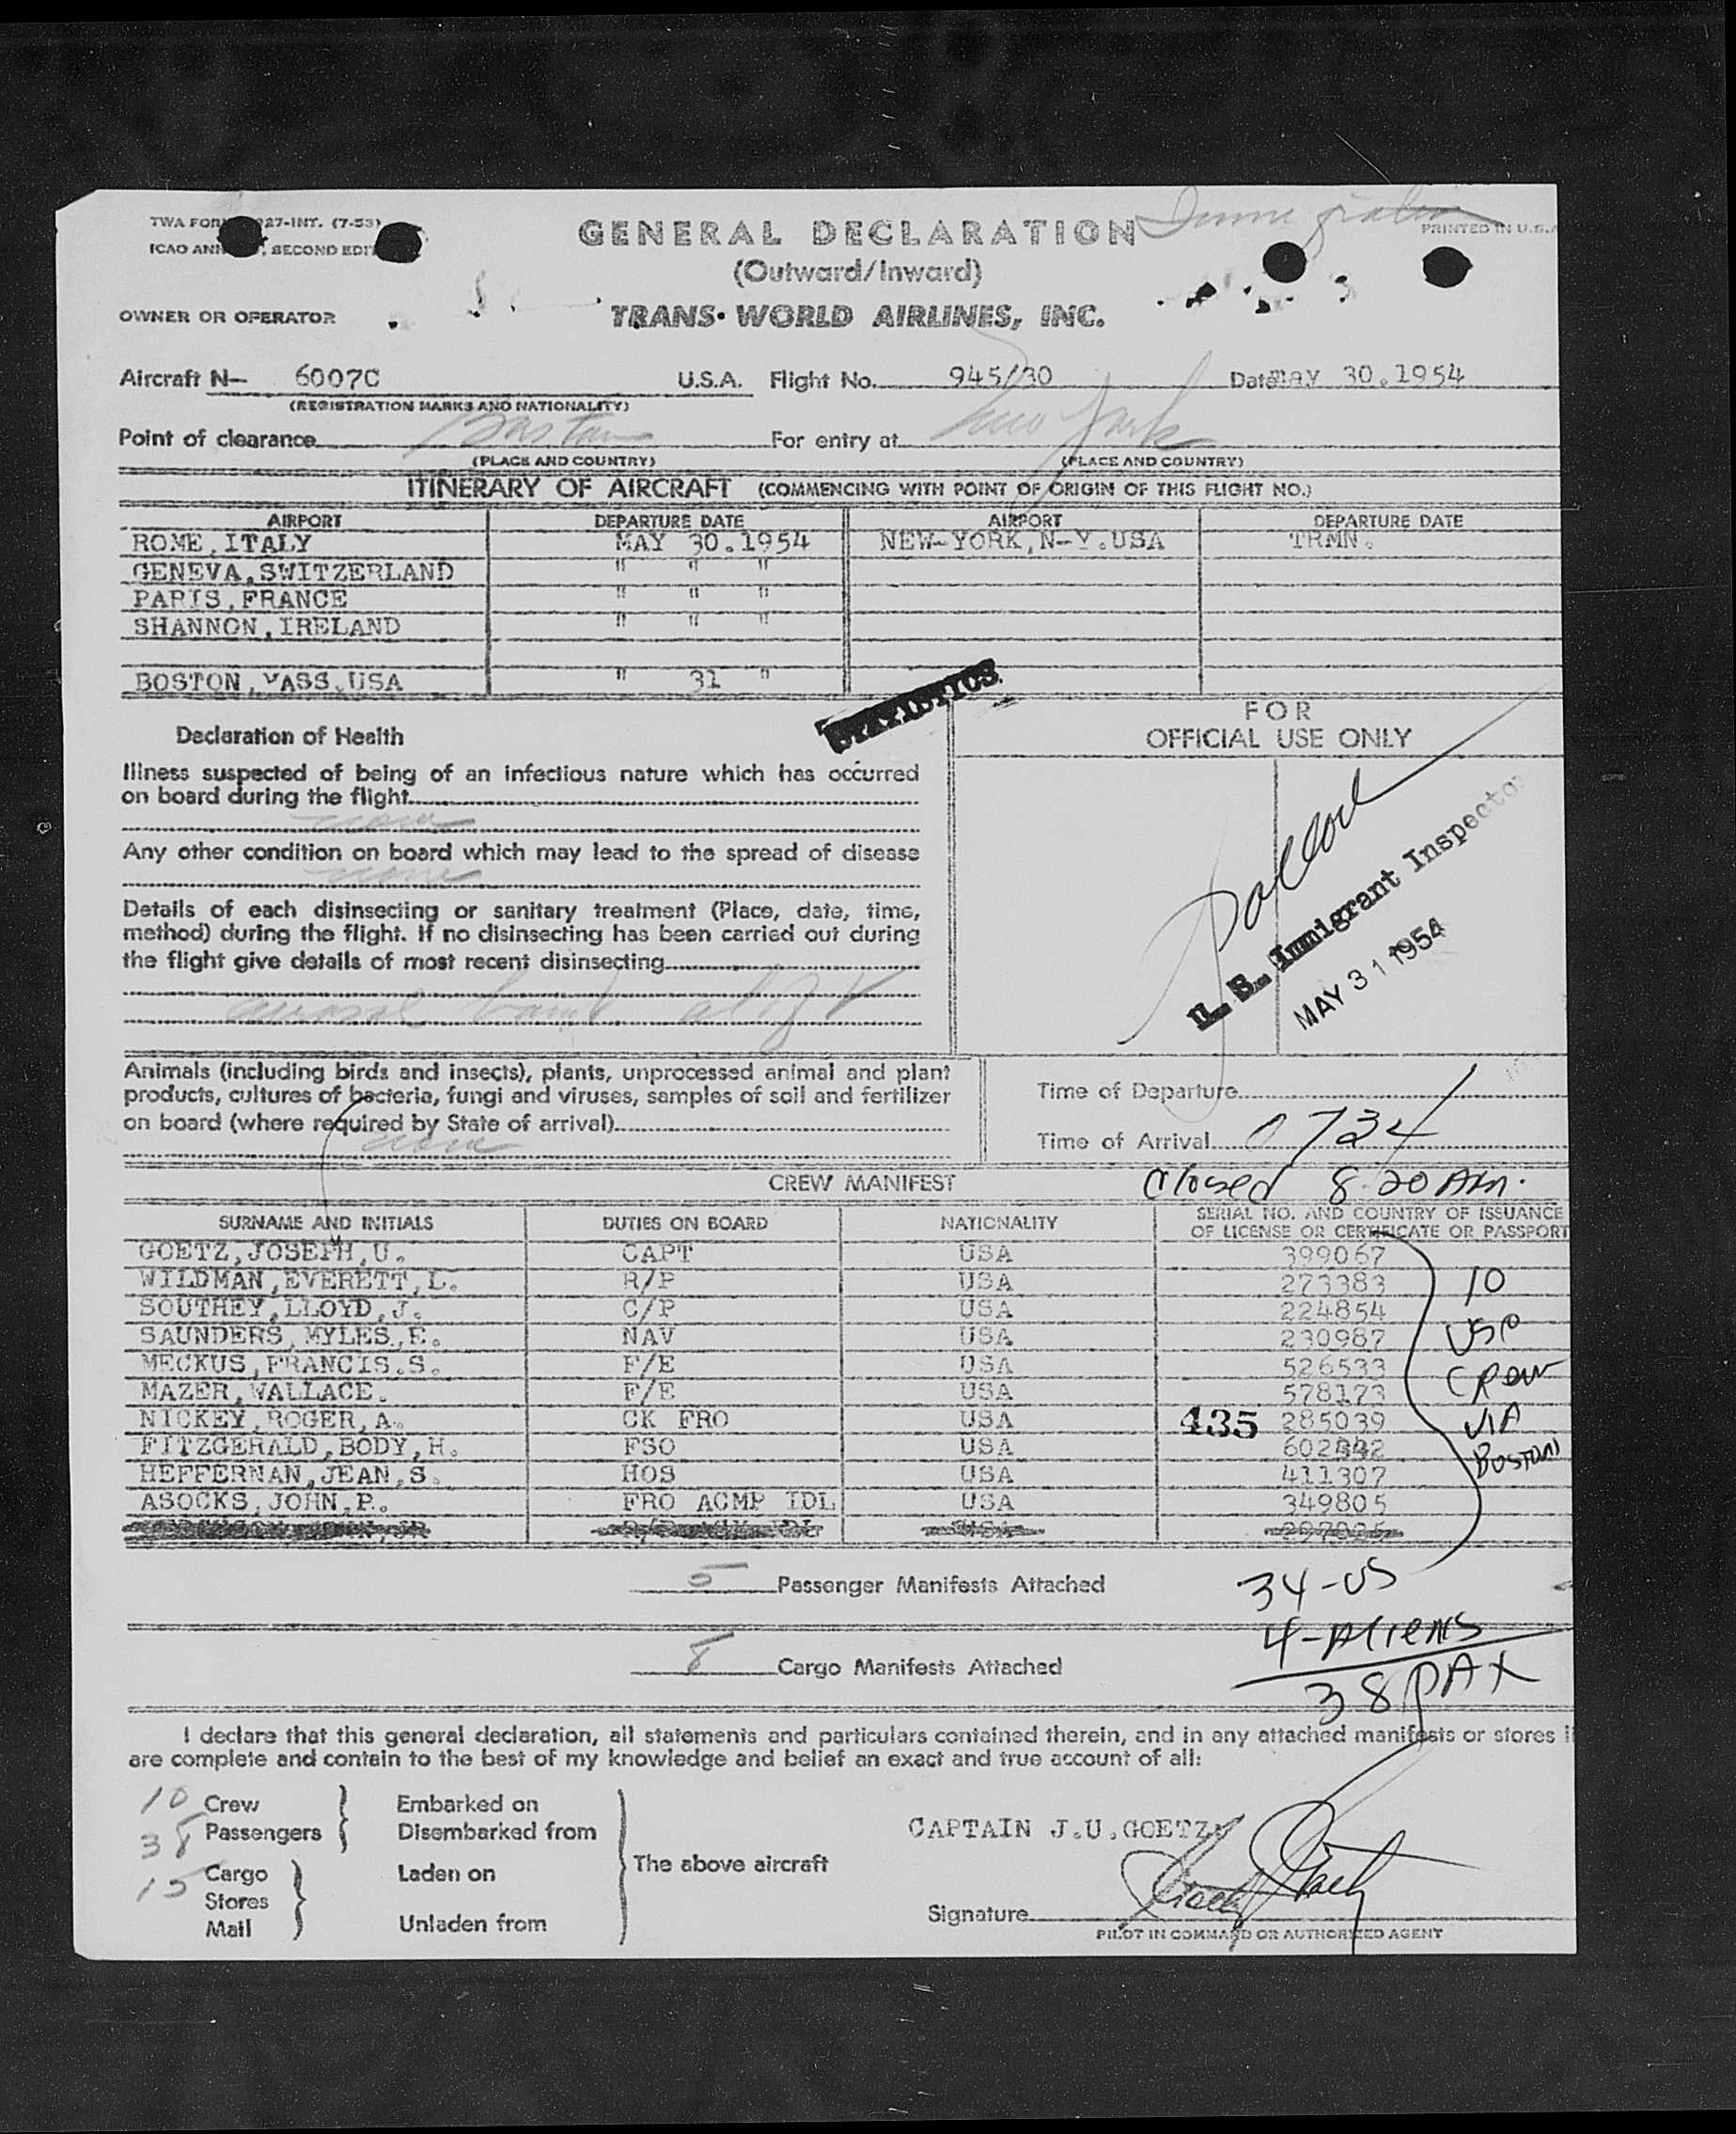 TWA FORM 27-INT. (7-53)
GENERAL DECLARATION
Immigration
PRINTED IN U.S.A
ICAO ANN , SECOND EDIT
(Outward/Inward)
OWNER OR OPERATOR
TRANS· WORLD AIRLINES, INC.
Aircraft N— 6007C U.S.A. Flight No. 945/30 Date may 30.1954
(REGISTRATION MARKS AND NATIONALITY)
Point of clearance Boston For entry at New York
(PLACE AND COUNTRY) (PLACE AND COUNTRY)
ITINERARY OF AIRCRAFT (COMMENCING WITH POINT OF ORIGIN OF THIS FLIGHT NO.)
AIRPORT DEPARTURE DATE AIRPORT DEPARTURE DATE
ROME,ITALY MAY 30.1954 NEW-YORK,N-Y.USA TRMN.
GENEVA,SWITZERLAND " " "
PARIS,FRANCE " " "
SHANNON,IRELAND " " "
BOSTON,MASS.USA " 31 "
STATISTICS
FOR
OFFICIAL USE ONLY
Declaration of Health
Illness suspected of being of an infectious nature which has occurred
on board during the flight
none
Any other condition on board which may lead to the spread of disease
none
Details of each disinsecting or sanitary treatment (Place, date, time,
method) during the flight. If no disinsecting has been carried out during
the flight give details of most recent disinsecting
aerosol bomb
Pollock
U. S. Immigrant Inspector
MAY 31 1954
Animals (including birds and insects), plants, unprocessed animal and plant
products, cultures of bacteria, fungi and viruses, samples of soil and fertilizer
on board (where required by State of arrival)
none
Time of Departure
Time of Arrival 0734
CREW MANIFEST
Closed 8:20 AM.
SURNAME AND INITIALS DUTIES ON BOARD NATIONALITY SERIAL NO. AND COUNTRY OF ISSUANCE
OF LICENSE OR CERTIFICATE OR PASSPORT
GOETZ,JOSEPH,U. CAPT USA 399067
WILDMAN,EVERETT,L. R/P USA 273383
SOUTHEY,LLOYD,J. C/P USA 224854
SAUNDERS,MYLES,E. NAV USA 230987
MECKUS,FRANCIS.S. F/E USA 526533
MAZER,WALLACE. F/E USA 578173
NICKEY,ROGER,A. CK FRO USA 435 285039
FITZGERALD,BODY,H. FSO USA
HEFFERNAN,JEAN,S. HOS USA 411307
ASOCKS,JOHN,P. FRO ACMP IDL USA 349805
10
USC
CREW
VIA
BOSTON
5 Passenger Manifests Attached
34-US
4-Aliens
38 PAX
8 Cargo Manifests Attached
I declare that this general declaration, all statements and particulars contained therein, and in any attached manifests or stores
are complete and contain to the best of my knowledge and belief an exact and true account of all:
10 Crew Embarked on
38 Passengers Disembarked from
15 Cargo Laden on
Stores
Mail Unladen from
The above aircraft
CAPTAIN J.U.GOETZ
Signature
PILOT IN COMMAND OR AUTHORIZED AGENT